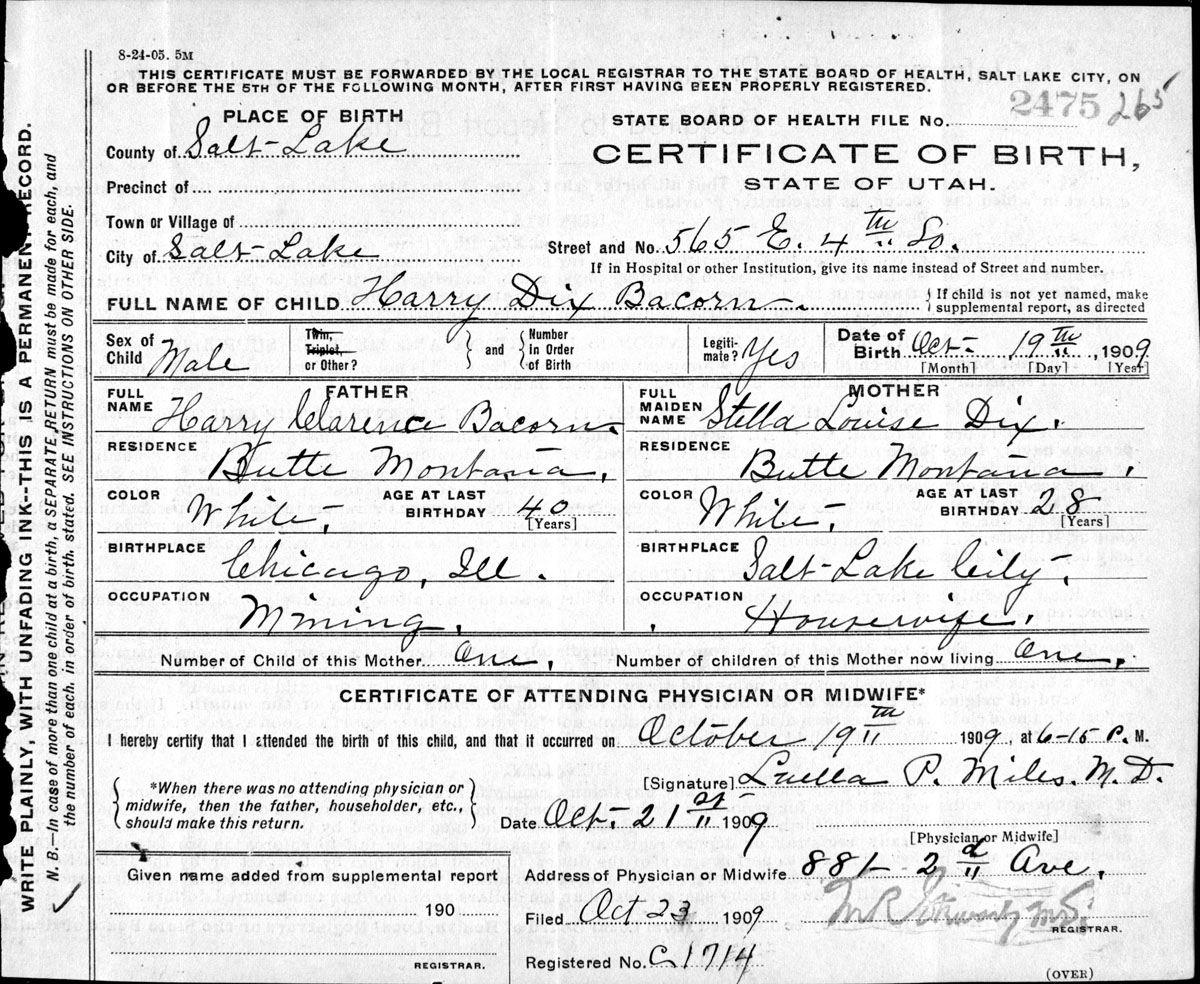 8-24-05. 5M
THIS CERTIFICATE MUST BE FORWARDED BY THE LOCAL REGISTRAR TO THE STATE BOARD OF HEALTH, SALT LAKE CITY, ON
OR BEFORE THE 5TH OF THE FOLLOWING MONTH, AFTER FIRST HAVING BEEN PROPERLY REGISTERED.
2475 265
PLACE OF BIRTH
STATE BOARD OF HEALTH FILE No.
County of Salt Lake
CERTIFICATE OF BIRTH,
STATE OF UTAH.
Precinct of
Town or Village of
City of Salt Lake
Street and No. 565 E. 4th So.
If in Hospital or other Institution, give its name instead of Street and number.
FULL NAME OF CHILD Harry Dix Bacorn. { If child is not yet named, make
supplemental report, as directed
Sex of Child Male
Twin, Triplet, or Other? } and { Number in Order of Birth
Legiti-mate? Yes
Date of Birth Oct. 19th, 1909
[Month] [Day] [Year]
FATHER
FULL NAME Harry Clarence Bacorn.
MOTHER
FULL MAIDEN NAME Stella Louise Dix.
RESIDENCE Butte Montana.
RESIDENCE Butte Montana.
COLOR White. AGE AT LAST BIRTHDAY 40 [Years]
COLOR White. AGE AT LAST BIRTHDAY 28 [Years]
BIRTHPLACE Chicago, Ill.
BIRTHPLACE Salt Lake City.
OCCUPATION Mining.
OCCUPATION Housewife.
Number of Child of this Mother One. Number of children of this Mother now living One.
CERTIFICATE OF ATTENDING PHYSICIAN OR MIDWIFE*
I hereby certify that I attended the birth of this child, and that it occurred on October 19th 1909, at 6-15 P. M.
*When there was no attending physician or
midwife, then the father, householder, etc.,
should make this return.
[Signature] Luella P. Miles. M.D.
Date Oct. 21st 1909
[Physician or Midwife]
Given name added from supplemental report
190
REGISTRAR.
Address of Physician or Midwife 881- 2d Ave.
Filed Oct 23 1909
REGISTRAR.
Registered No. C1714
(OVER)
WRITE PLAINLY, WITH UNFADING INK--THIS IS A PERMANENT RECORD.
N. B.--In case of more than one child at a birth, a SEPARATE RETURN must be made for each, and
the number of each, in order of birth, stated. SEE INSTRUCTIONS ON OTHER SIDE.